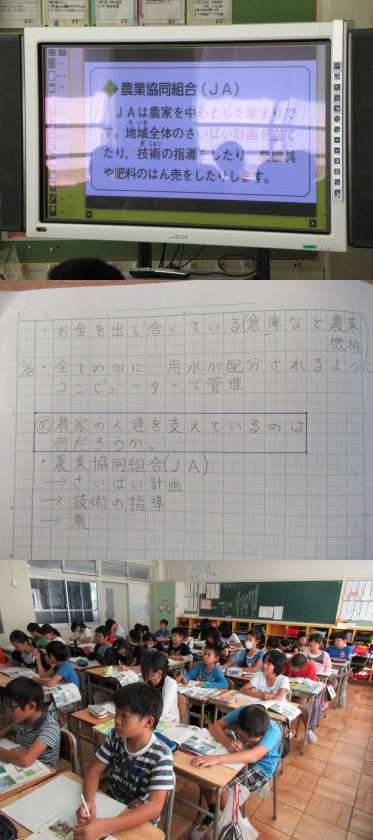 農業協同組合(JA)
JAは農家を中心とした集まりで
す。地域全体のさいばい計画を立て
たり、技術の指導をしたり、農機具
や肥料のはん売をしたりします。
・お金を出し合っている(倉庫など農業機械)
・全ての田に 用水が配分されるように
コンピューターで管理
め 農家の人達を支えているのは
何だろうか。
・農業協同組合(JA)
→さいばい計画
→技術の指導
→農